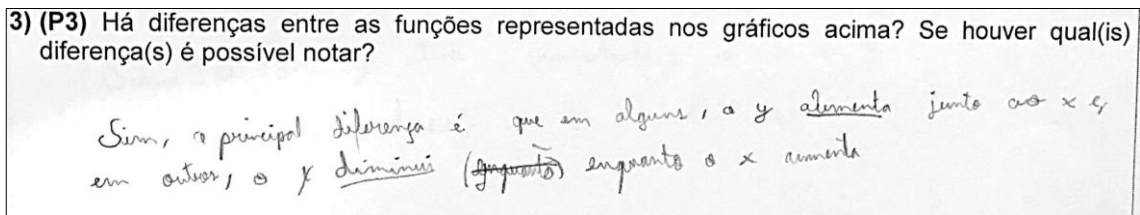 3) (P3) Há diferenças entre as funções representadas nos gráficos acima? Se houver qual(is)
diferença(s) é possível notar?
Sim, a principal diferença é que em alguns, o y alumenta junto ao x e,
em outros, o y diminui (enquanto) enquanto o x aumenta